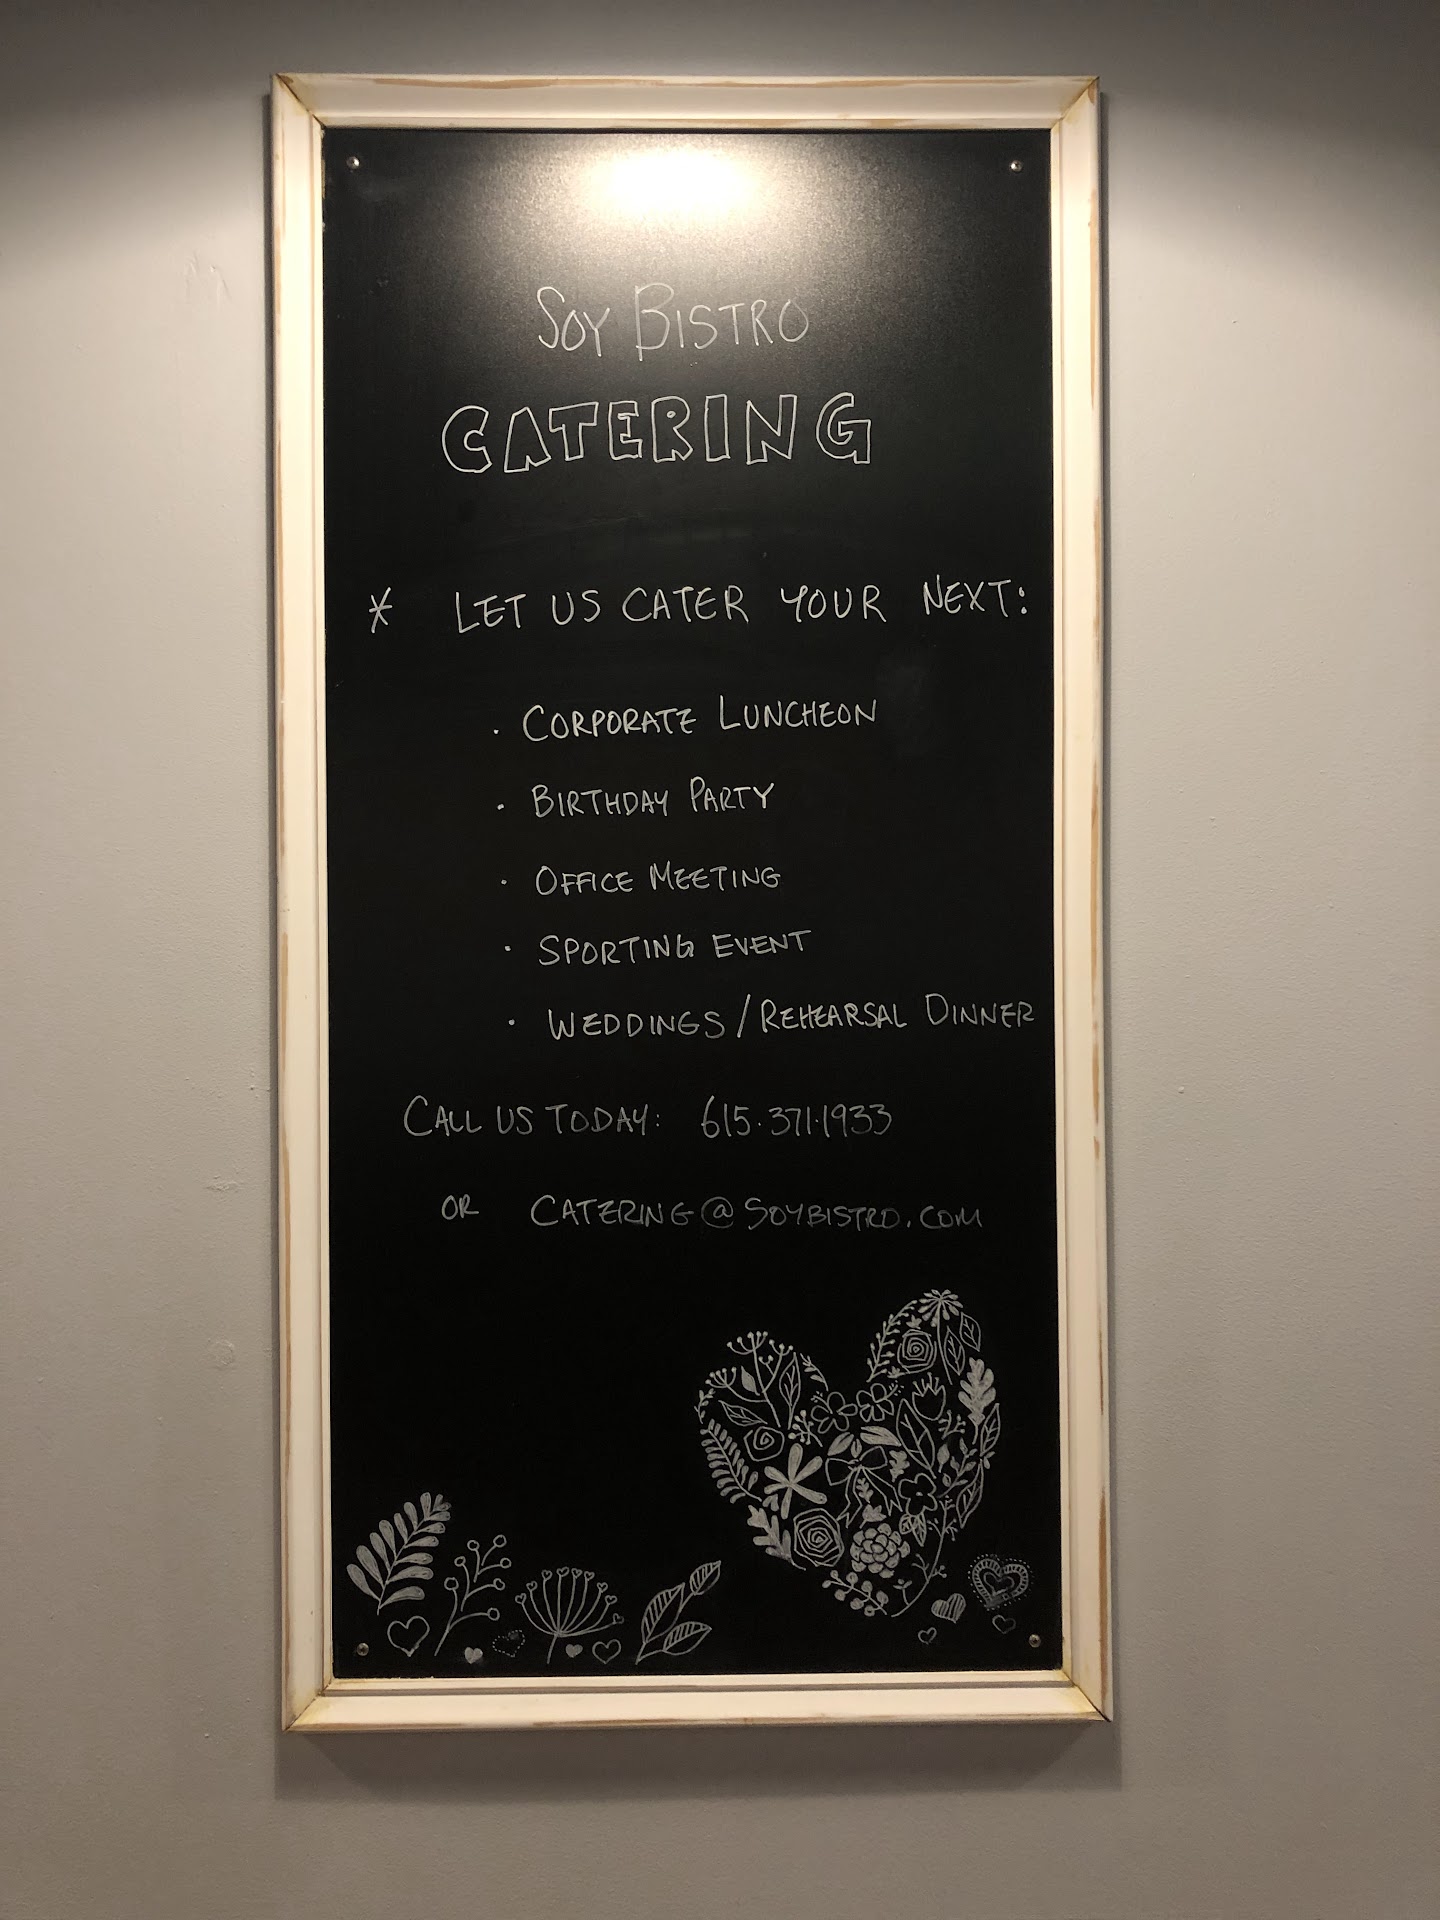 SOY BISTRO
CATERING
* LET US CATER YOUR NEXT:
· CORPORATE LUNCHEON
· BIRTHDAY PARTY
· OFFICE MEETING
· SPORTING EVENT
· WEDDINGS / REHEARSAL DINNER
CALL US TODAY: 615.371.1933
OR CATERING@SOYBISTRO.COM